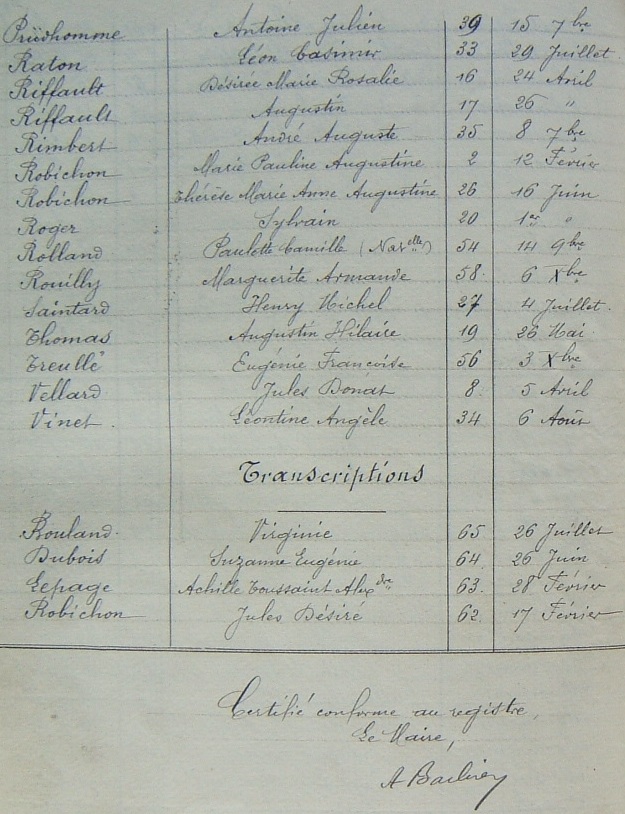 Prüdhomme Antoine Julien 39 15 7bre
Raton Léon Casimir 33 29 Juillet.
Riffault Désirée Marie Rosalie 16 24 Avril
Riffault Augustin 17 26 "
Rimbert André Auguste 35 8 7bre
Robichon Marie Pauline Augustine 2 12 Février
Robichon Thérèse Marie Anne Augustine 26 16 Juin
Roger Sylvain 20 1er "
Rolland Paulette Camille (Nav elle) 54 14 9bre
Rouilly Marguerite Armande 58. 6 Xbre
Saintard Henry Michel 27 4 Juillet.
Thomas Augustin Hilaire 19 26 Mai.
Treullé Eugénie Francoise 56 3 Xbre
Vellard Jules Donat 8. 5 Avril
Vinet. Léontine Angèle 34 6 Août
Transcriptions
Rouland. Virginie 65 26 Juillet
Dubois Suzanne Eugénie 64. 26 Juin
Lepage Achille Toussaint Alexdre 63. 28 Février
Robichon Jules Désiré 62. 17 Février
Certifié conforme au registre,
Le Maire,
A